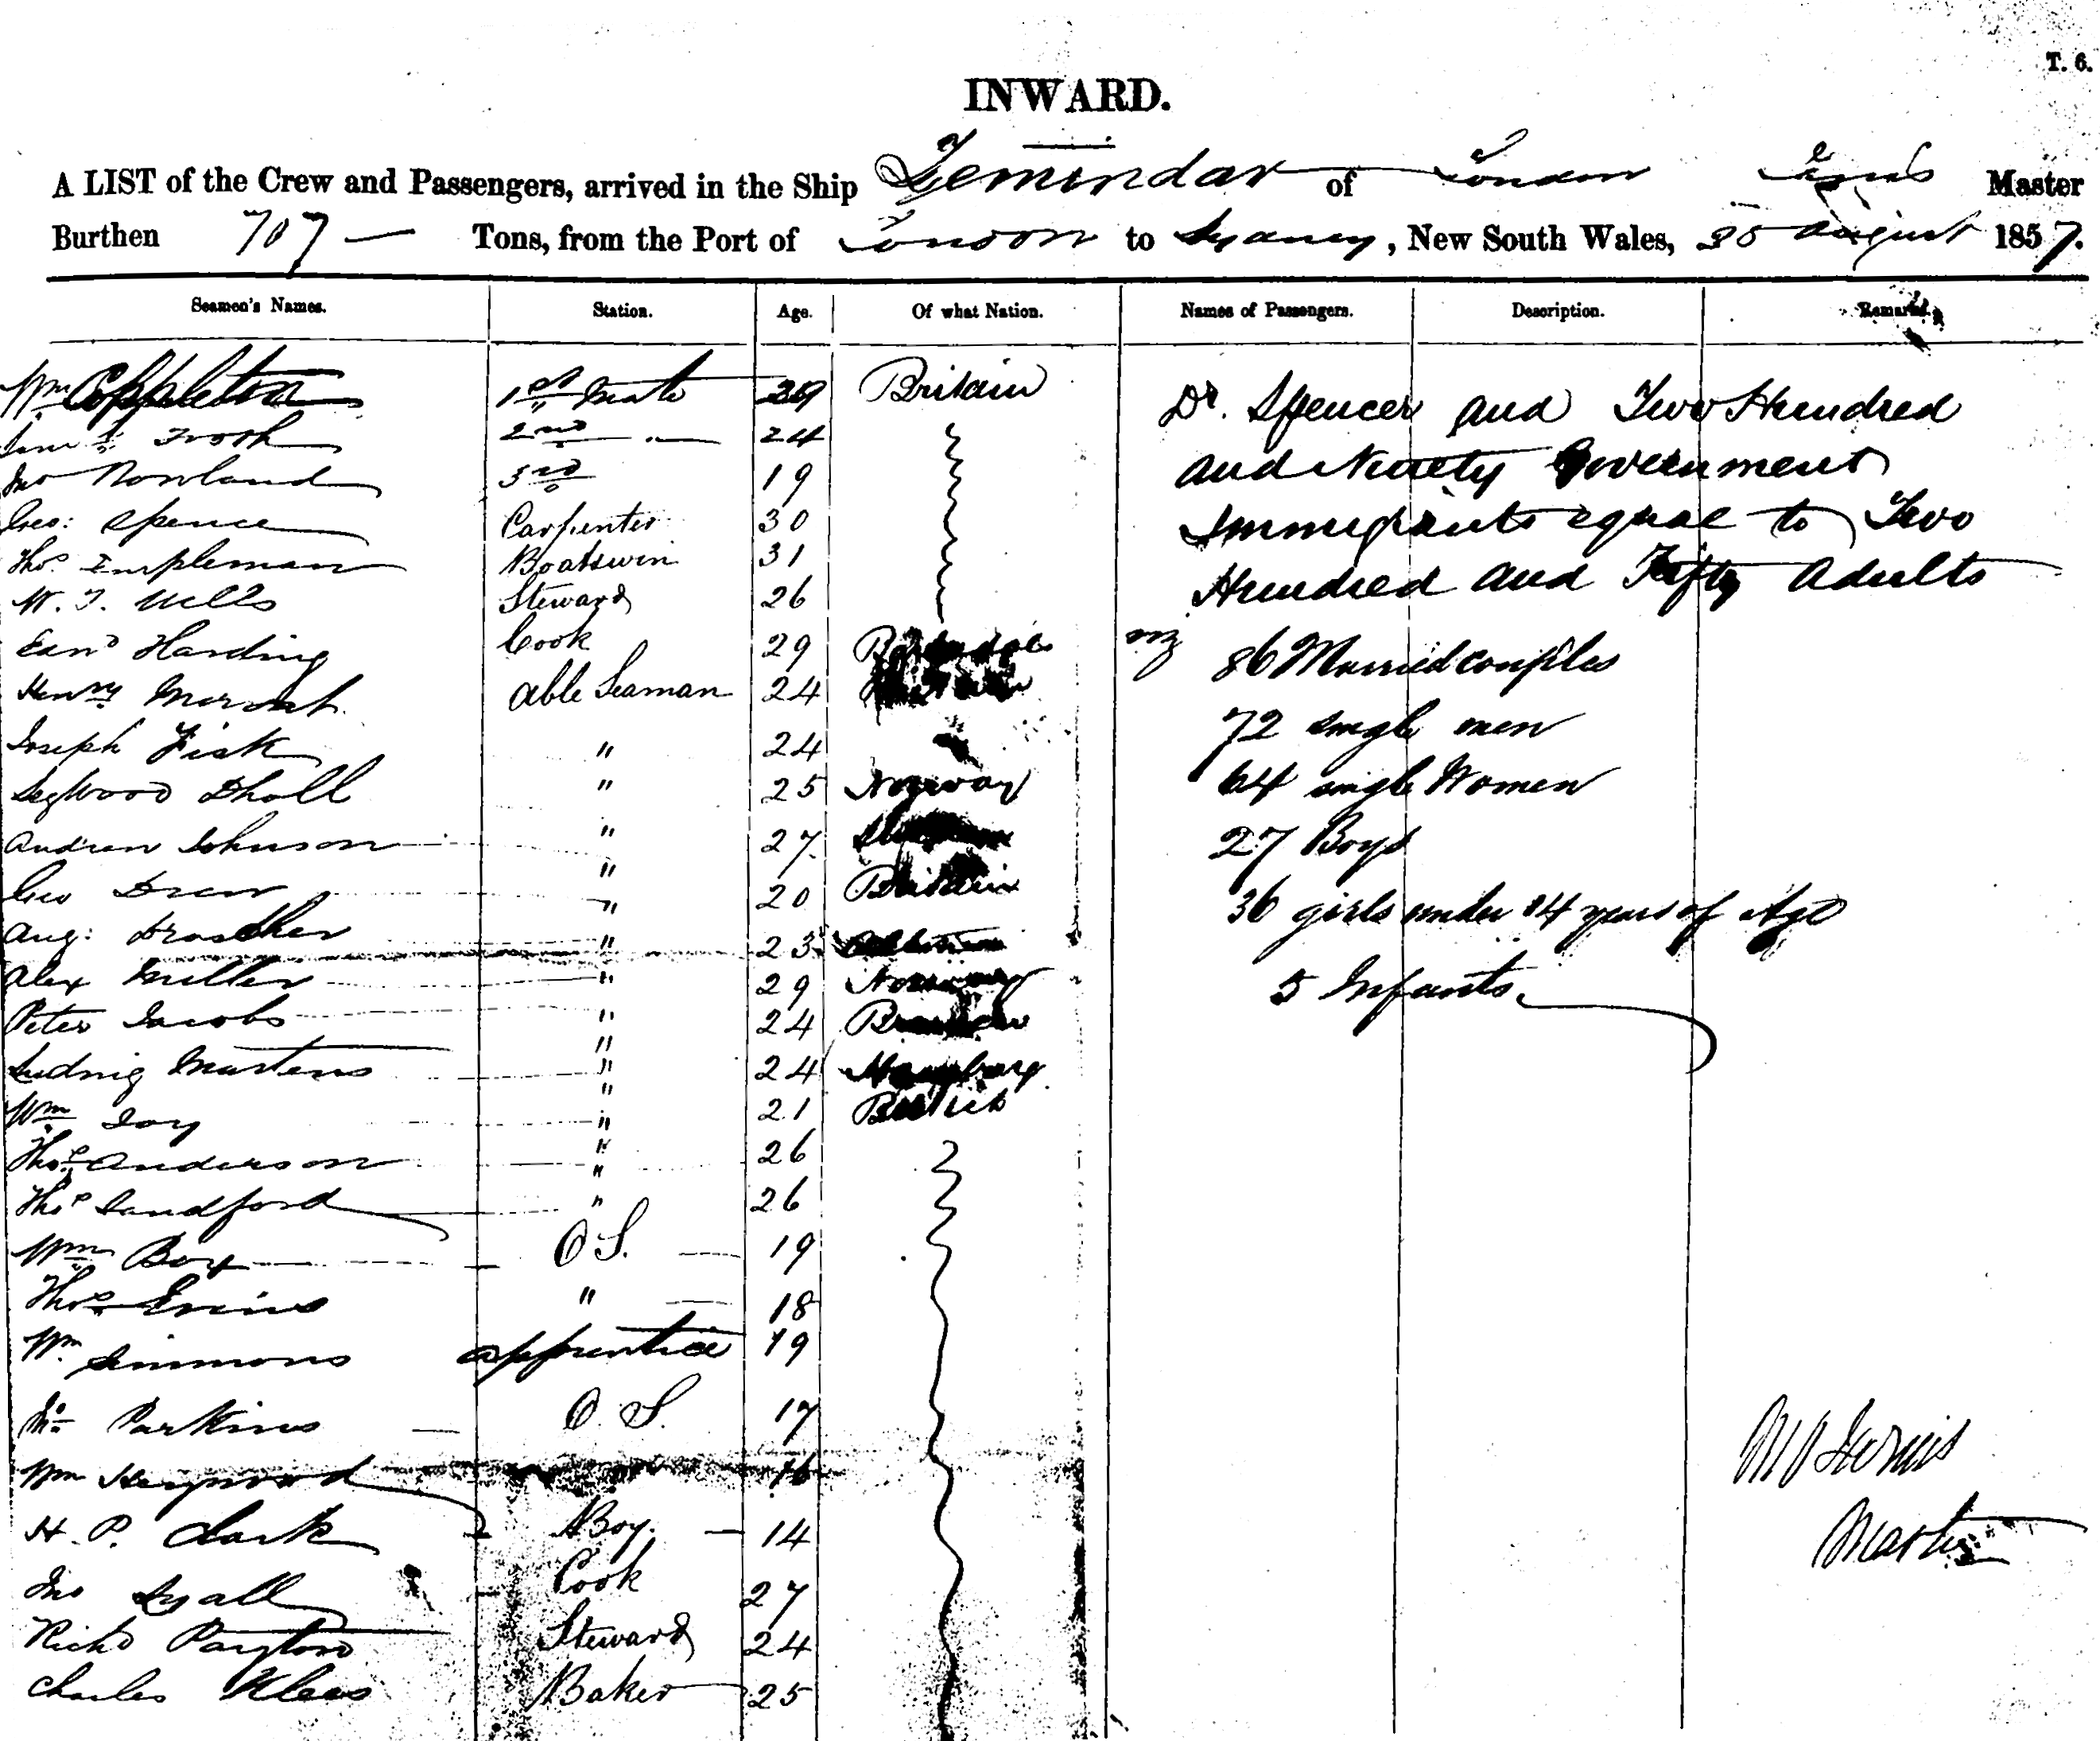 T. 6.
INWARD.
A LIST of the Crew and Passengers, arrived in the Ship Zemindar of London Master
Burthen 707 — Tons, from the Port of London to Sydney, New South Wales, 30 August 1857.
Seamen's Names. Station. Age. Of what Nation. Names of Passengers. Description. Remarks.
Wm Coppleton 1st Mate 29 Britain
2nd " 24
Jno Rowland 3rd " 19
Geo: Spence Carpenter 30
Thos Templeman Boatswin 31
W. T. Wells Steward 26
Edwd Harding Cook 29
Henry able Seaman 24
Joseph Fisk " 24
Dholl " 25 Norway
Andrew Johnson " 27
Geo Drew " 20 Britain
Aug: " 23
Alex Miller " 29 Norway
Peter Jacobs " 24
Ludwig Martens " 24 Hamburg
Wm Joy " 21 British
Thos Anderson " 26
Thos Sandford " 26
Wm Box O S. 19
Thos " 18
Wm Simmons apprentice 19
Parkins O. S. 17
Wm Heywood 16
H. P. Clark Boy. 14
Jno Lyall Cook 27
Richd Payton Steward 24
Charles Klees Baker 25
Dr. Spencer and Two Hundred
and Ninety Government
Immigrants equal to Two
Hundred and Fifty Adults
86 Married couples
72 single men
64 single Women
27 Boys
36 girls under 14 years of Age
5 Infants
Master